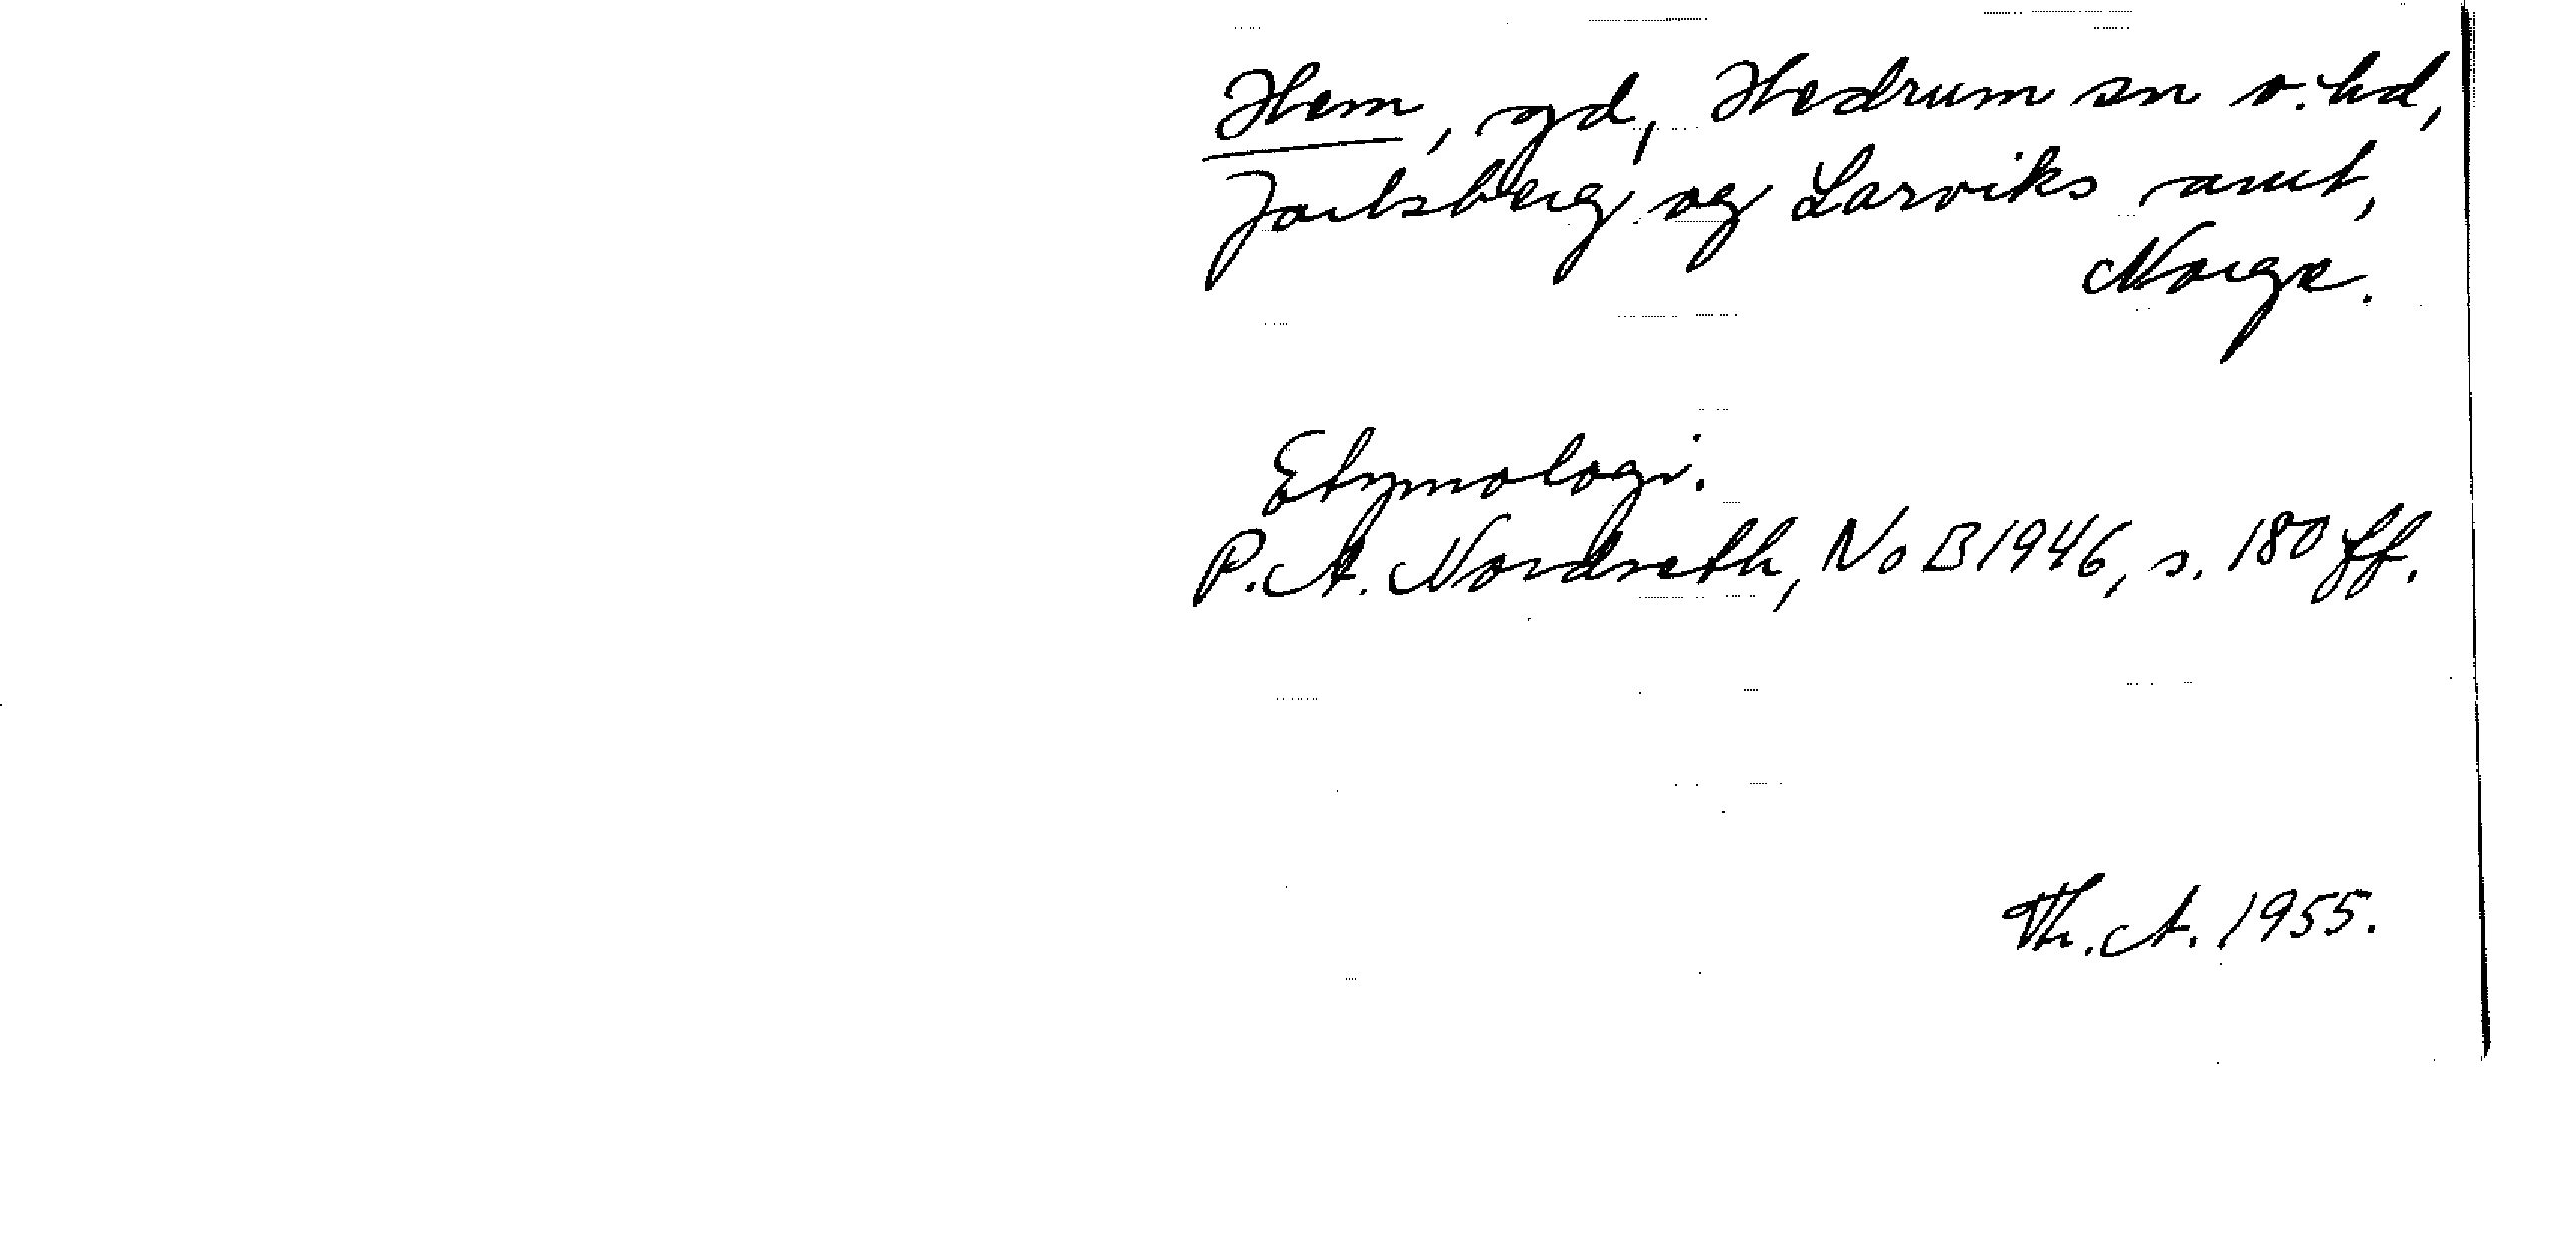 Hem, gd, Hedrum sn o. hd,
Jarlsberg og Larviks amt,
Norge.
Etymologi.
P. A. Nordseth, NoB 1946, s. 180 ff.
Th. A. 1955.